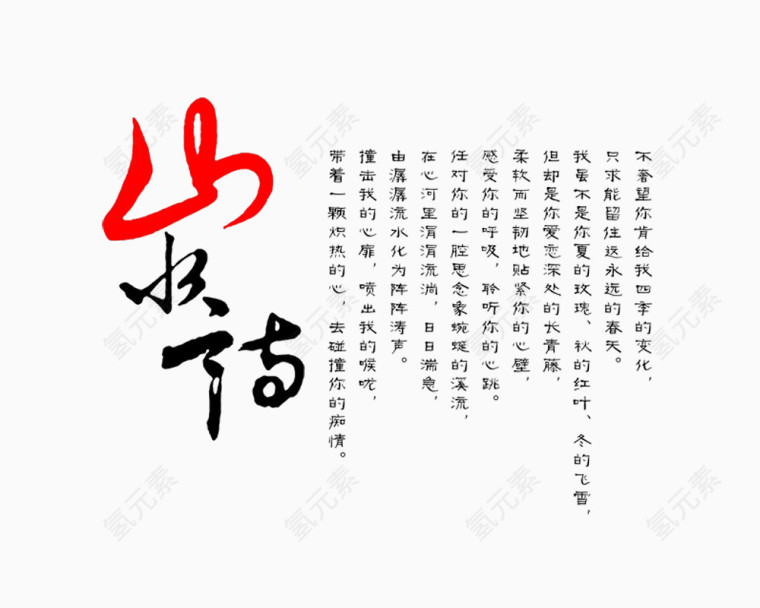 山水诗
不奢望你肯给我四季的变化，
只求能留住这永远的春天。
我虽不是你夏的玫瑰、秋的红叶、冬的飞雪，
但却是你爱恋深处的长青藤，
柔软而坚韧地贴紧你的心壁，
感受你的呼吸，聆听你的心跳。
任对你的一腔思念象蜿蜒的溪流，
在心河里涓涓流淌，日日湍急，
由潺潺流水化为阵阵涛声。
撞击我的心扉，喷出我的喉咙，
带着一颗炽热的心，去碰撞你的痴情。
氢元素
氢元素
氢元素
氢元素
氢元素
氢元素
氢元素
氢元素
氢元素
氢元素
氢元素
氢元素